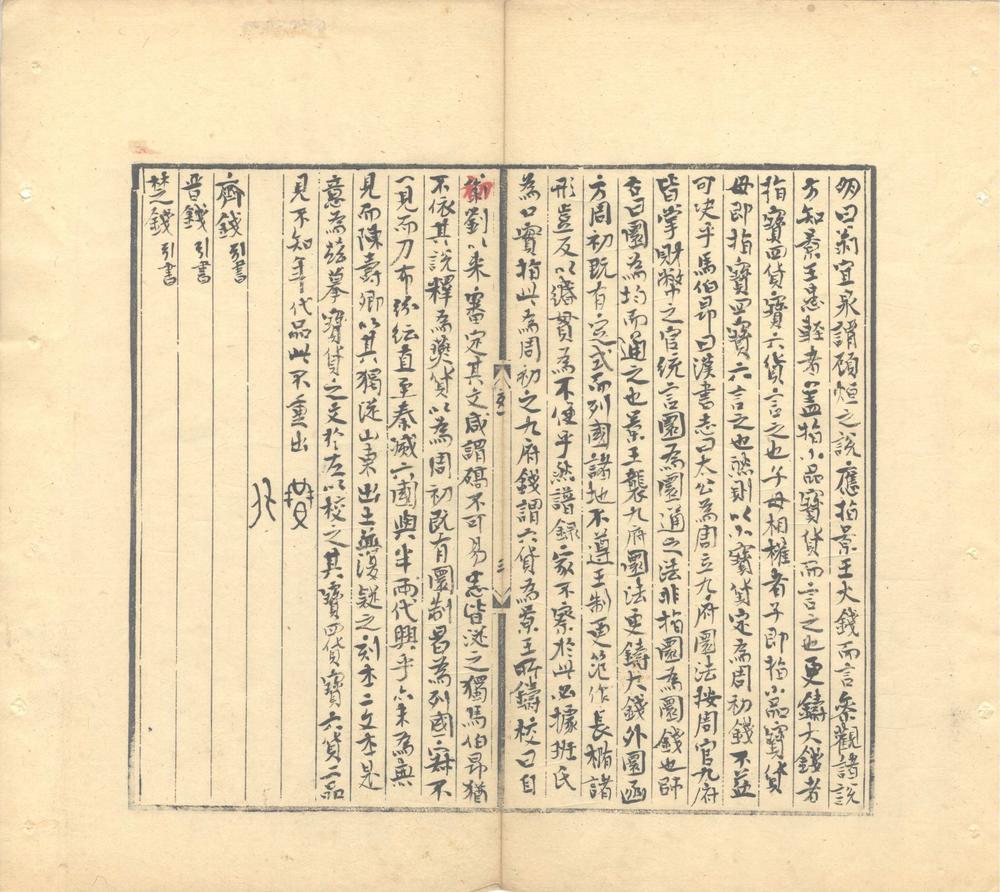 明曰蔡宜泉謂顧烜之說應指景王大錢而言參觀諸說
方知景王患輕者蓋指小品寶貨而言之也更鑄大錢者
指寶四貨寶六貨言之也子母相權者子即指小品寶貨
母即指寶四寶六言之也然則以小寶貨定為周初錢不益
可決乎馬伯昂曰漢書志曰太公為周立九府圜法按周官九府
皆掌財幣之官統言圜為圜通之法非指圜為圜錢也師
古曰圜為均而通之也景王襲九府圜法更鑄大錢外圜函
方周初既有定式而列國諸地不遵王制更范作長橢諸
形豈反以繦貫為不便乎然譜錄家不察於此必據班氏
為口實指此為周初之九府錢謂六貨為景王所鑄校曰自
劉以來審定其文咸謂確不可易志皆遜之獨馬伯昂猶
不依其說釋為燹貨以為周初既有圜制曷為列國寂不
一見而刀布紛紜直至秦滅六國與半兩代興乎亦未為無
見而陳壽卿以其獨從山東出土並復疑之刻
意為茲摹寶貨之文於左以校之其寶四貨寶六貨二品
見不知年代品此不重出
齊錢引書
晉錢引書
楚錢引書
文
三